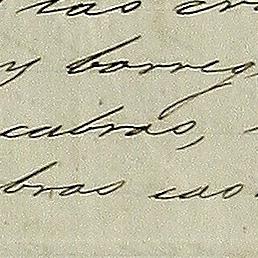 las
y borreg
cabras,
bras cas